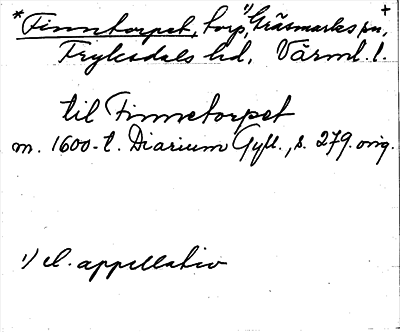 *Finntorpet, torp,¹) Gräsmarks sn, +
Fryksdals hd, Värml. l.
til Finnetorpet
m. 1600-t. Diarium Gyll., s. 279. orig.
¹) el. appellativ